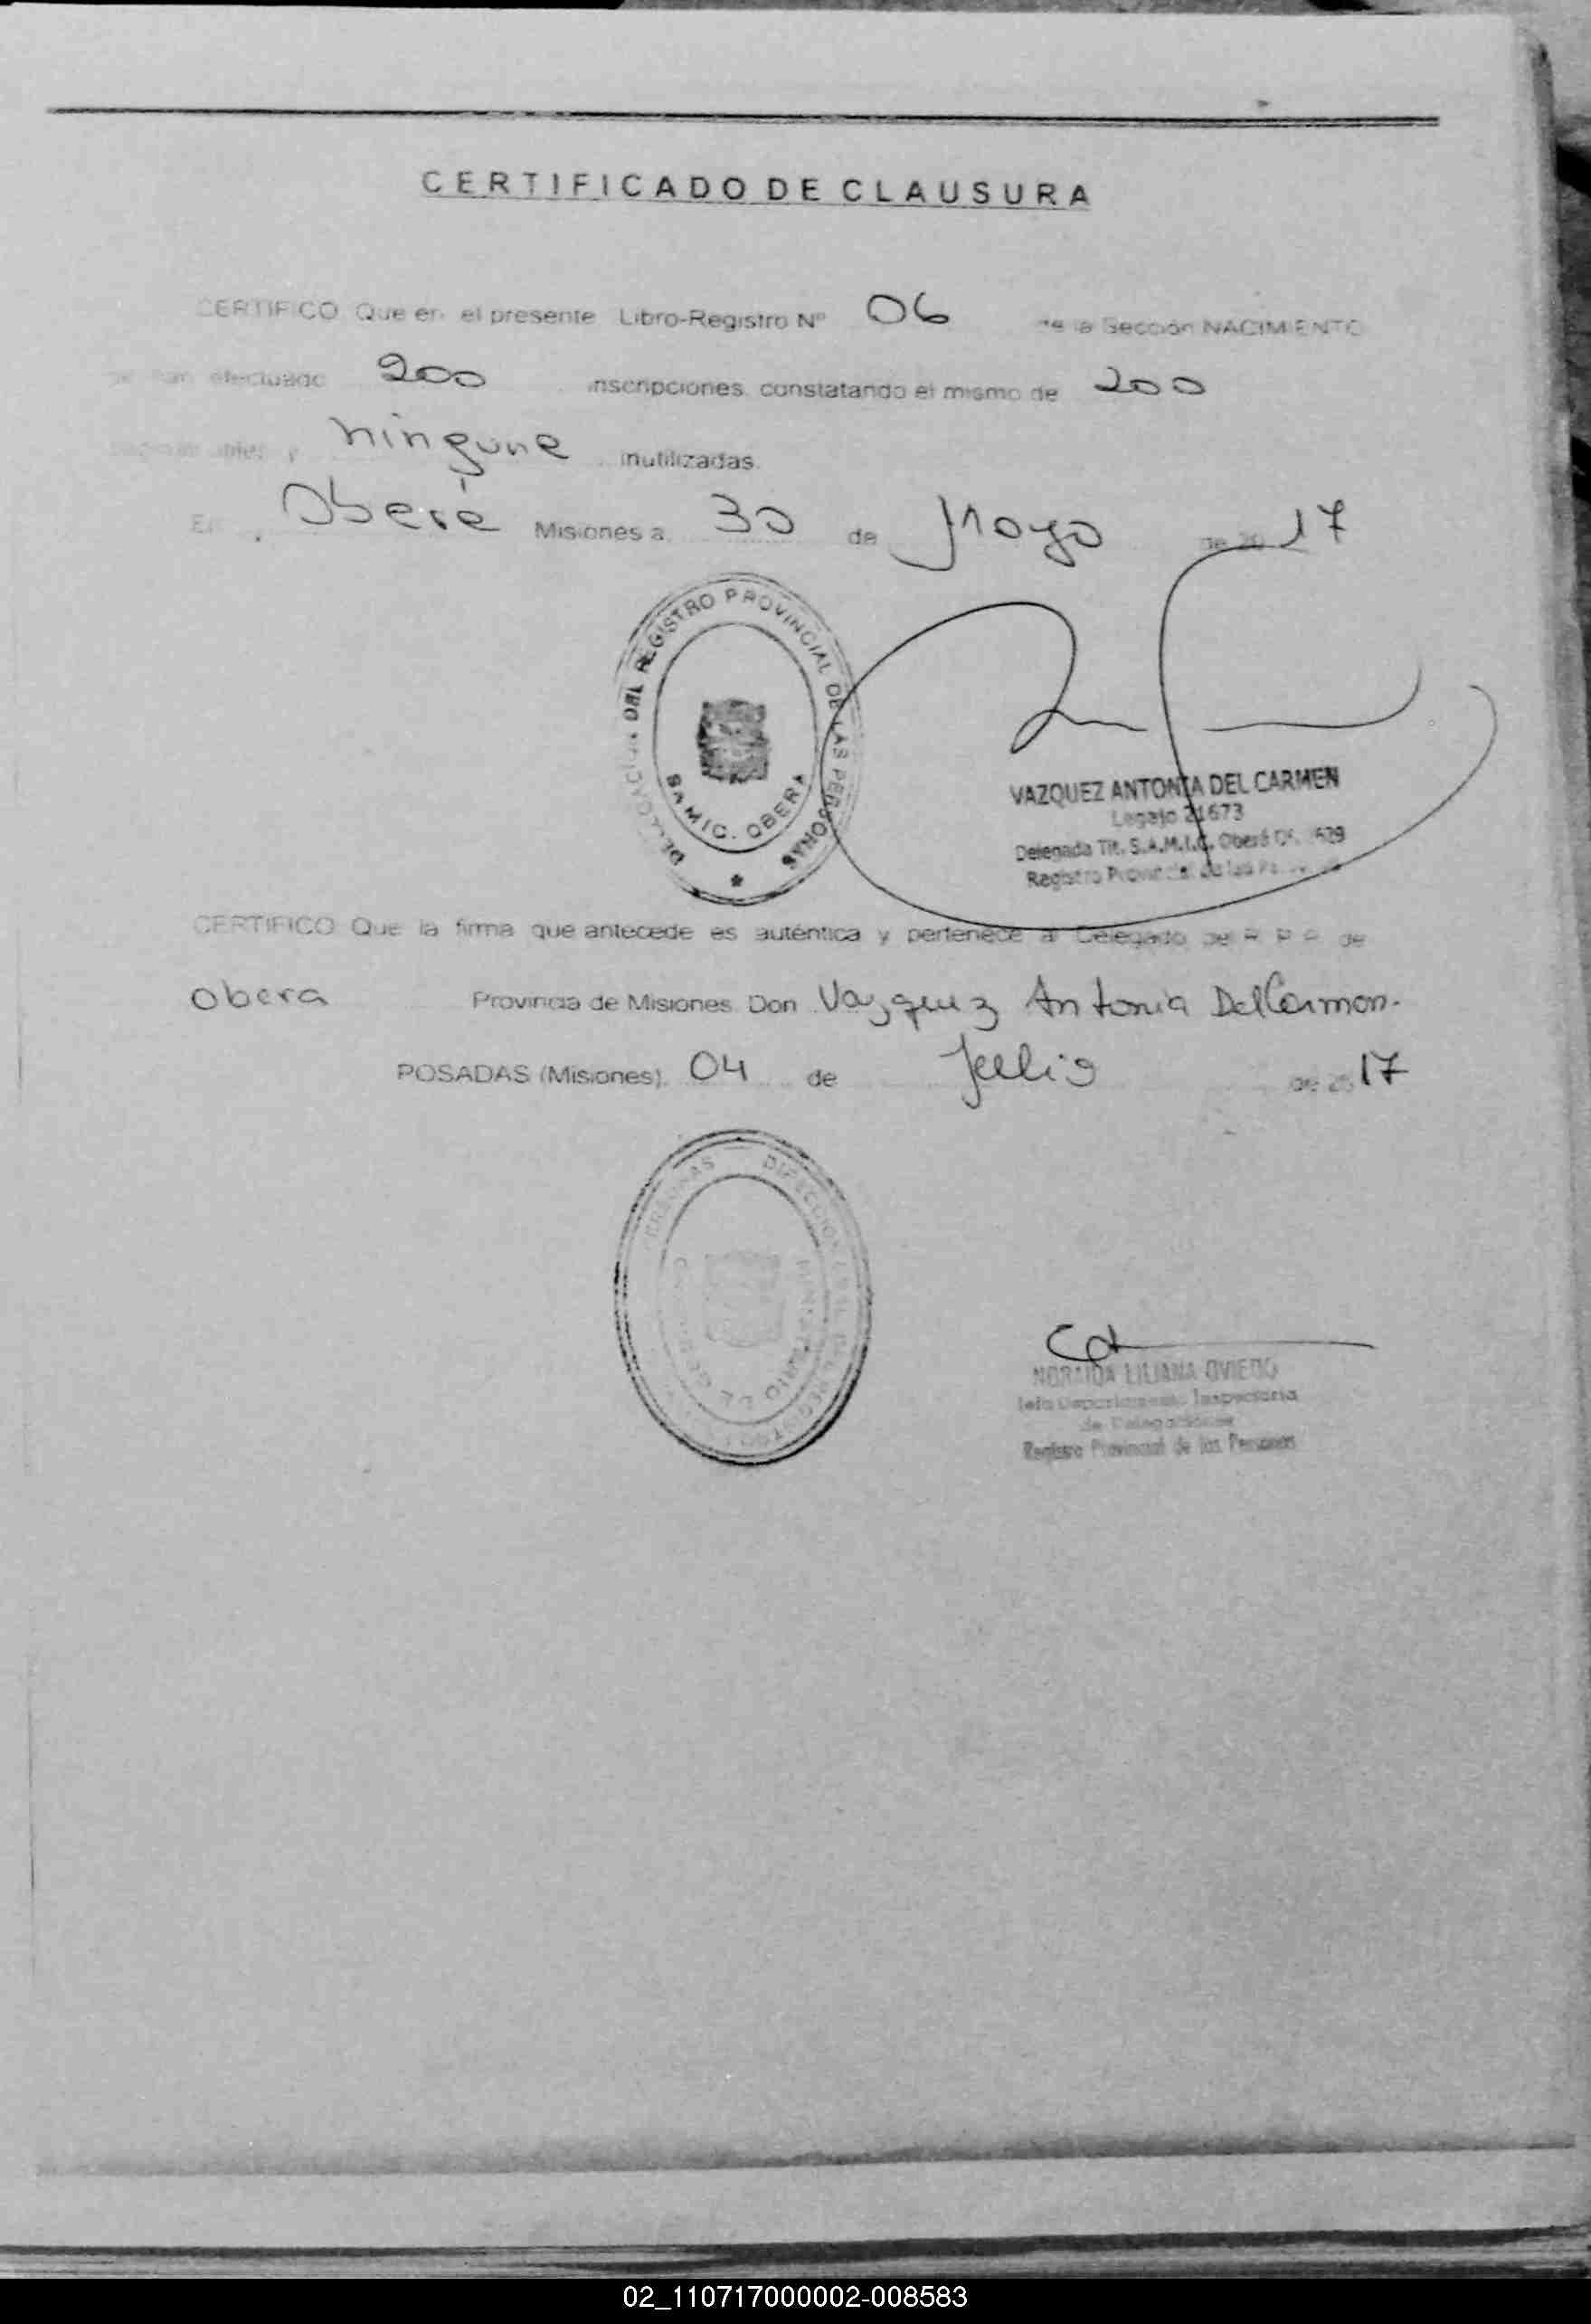 CERTIFICADO DE CLAUSURA
CERTIFICO Que en el presente Libro-Registro Nº 06 de la Sección NACIMIENTO
se han efectuado 200 inscripciones, constatando el mismo de 200
ninguna inutilizadas.
En Oberá Misiones a 30 de Mayo de 20 17
DELEGACION DEL REGISTRO PROVINCIAL DE LAS PERSONAS
SAMIC. OBERA
VAZQUEZ ANTONIA DEL CARMEN
Legajo 21673
Delegada Tit. S.A.M.I.C. Oberá
Registro Provincial de las
CERTIFICO Que la firma que antecede es auténtica y pertenece al Delegado del R P P de
Obera Provincia de Misiones. Don Vazquez Antonia Del Carmen.
POSADAS (Misiones), 04 de Julio de 20 17
PERSONAS DIRECCION GRAL DEL REGISTRO
MINISTERIO DE GOBIERNO
NORAIDA LILIANA OVIEDO
Jefa Departamento Inspectoría
de Delegaciones
Registro Provincial de las Personas
02_110717000002-008583